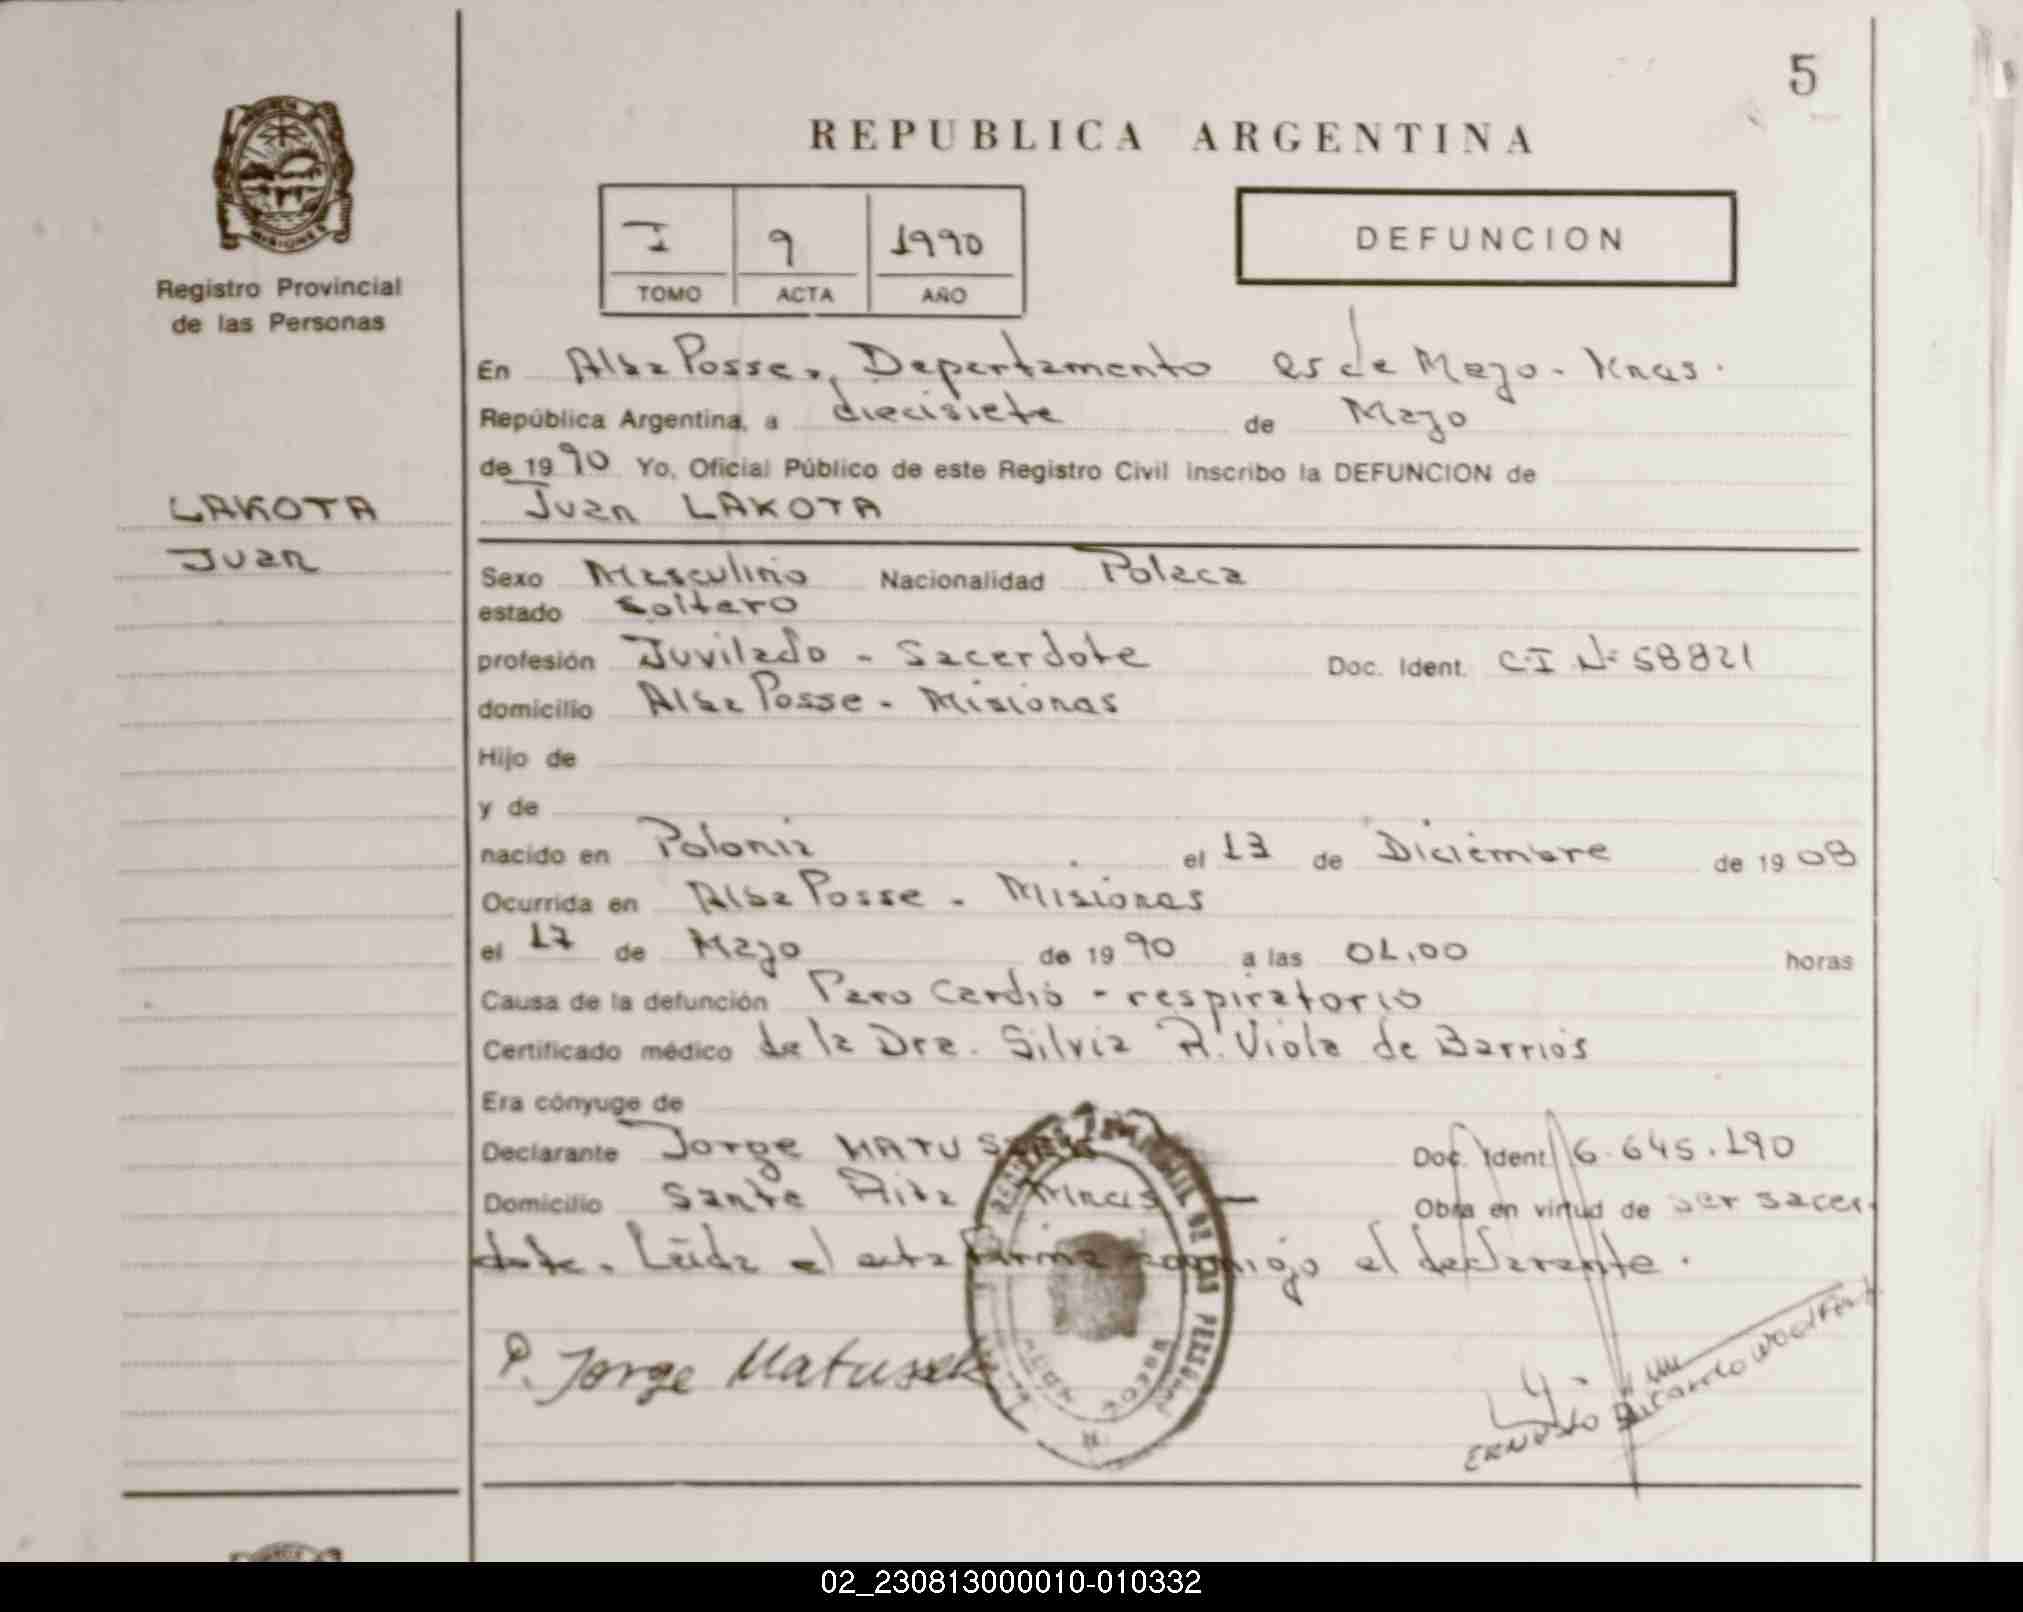 5
REPUBLICA ARGENTINA
I 9 1990
TOMO ACTA AÑO
DEFUNCION
MISIONES
Registro Provincial
de las Personas
En Alba Posse, Departamento 25 de Mayo - Mnes.
República Argentina, a diecisiete de Mayo
de 1990 Yo, Oficial Público de este Registro Civil inscribo la DEFUNCION de
LAKOTA
Juan
Juan LAKOTA
Sexo Masculino Nacionalidad Polaca
estado soltero
profesión Juvilado - Sacerdote Doc. Ident. C.I Nº 58821
domicilio Alba Posse - Misiones
Hijo de
y de
nacido en Polonia el 13 de Diciembre de 1908
Ocurrida en Alba Posse - Misiones
el 17 de Mayo de 1990 a las 01,00 horas
Causa de la defunción Paro Cardio - respiratorio
Certificado médico de la Dra. Silvia R. Viola de Barrios
Era cónyuge de
Declarante Jorge MATUSZEK Doc. Ident. 6.645.190
Domicilio Santa Rita Mnes Obra en virtud de ser sacer-
dote. Leída el acta firma conmigo el declarante.
P. Jorge Matuszek
ERNESTO Ricardo
02_230813000010-010332